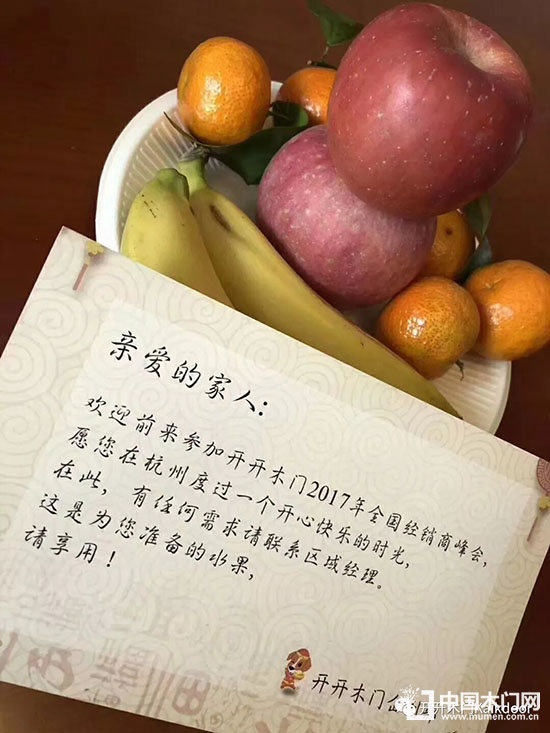 亲爱的家人：
欢迎前来参加开开木门2017年全国经销商峰会，
愿您在杭州度过一个开心快乐的时光，
在此，有任何需求请联系区域经理。
这是为您准备的水果，
请享用！
开开木门
中国木门网
开开木门kaikdoor
www.mumen.com.cn